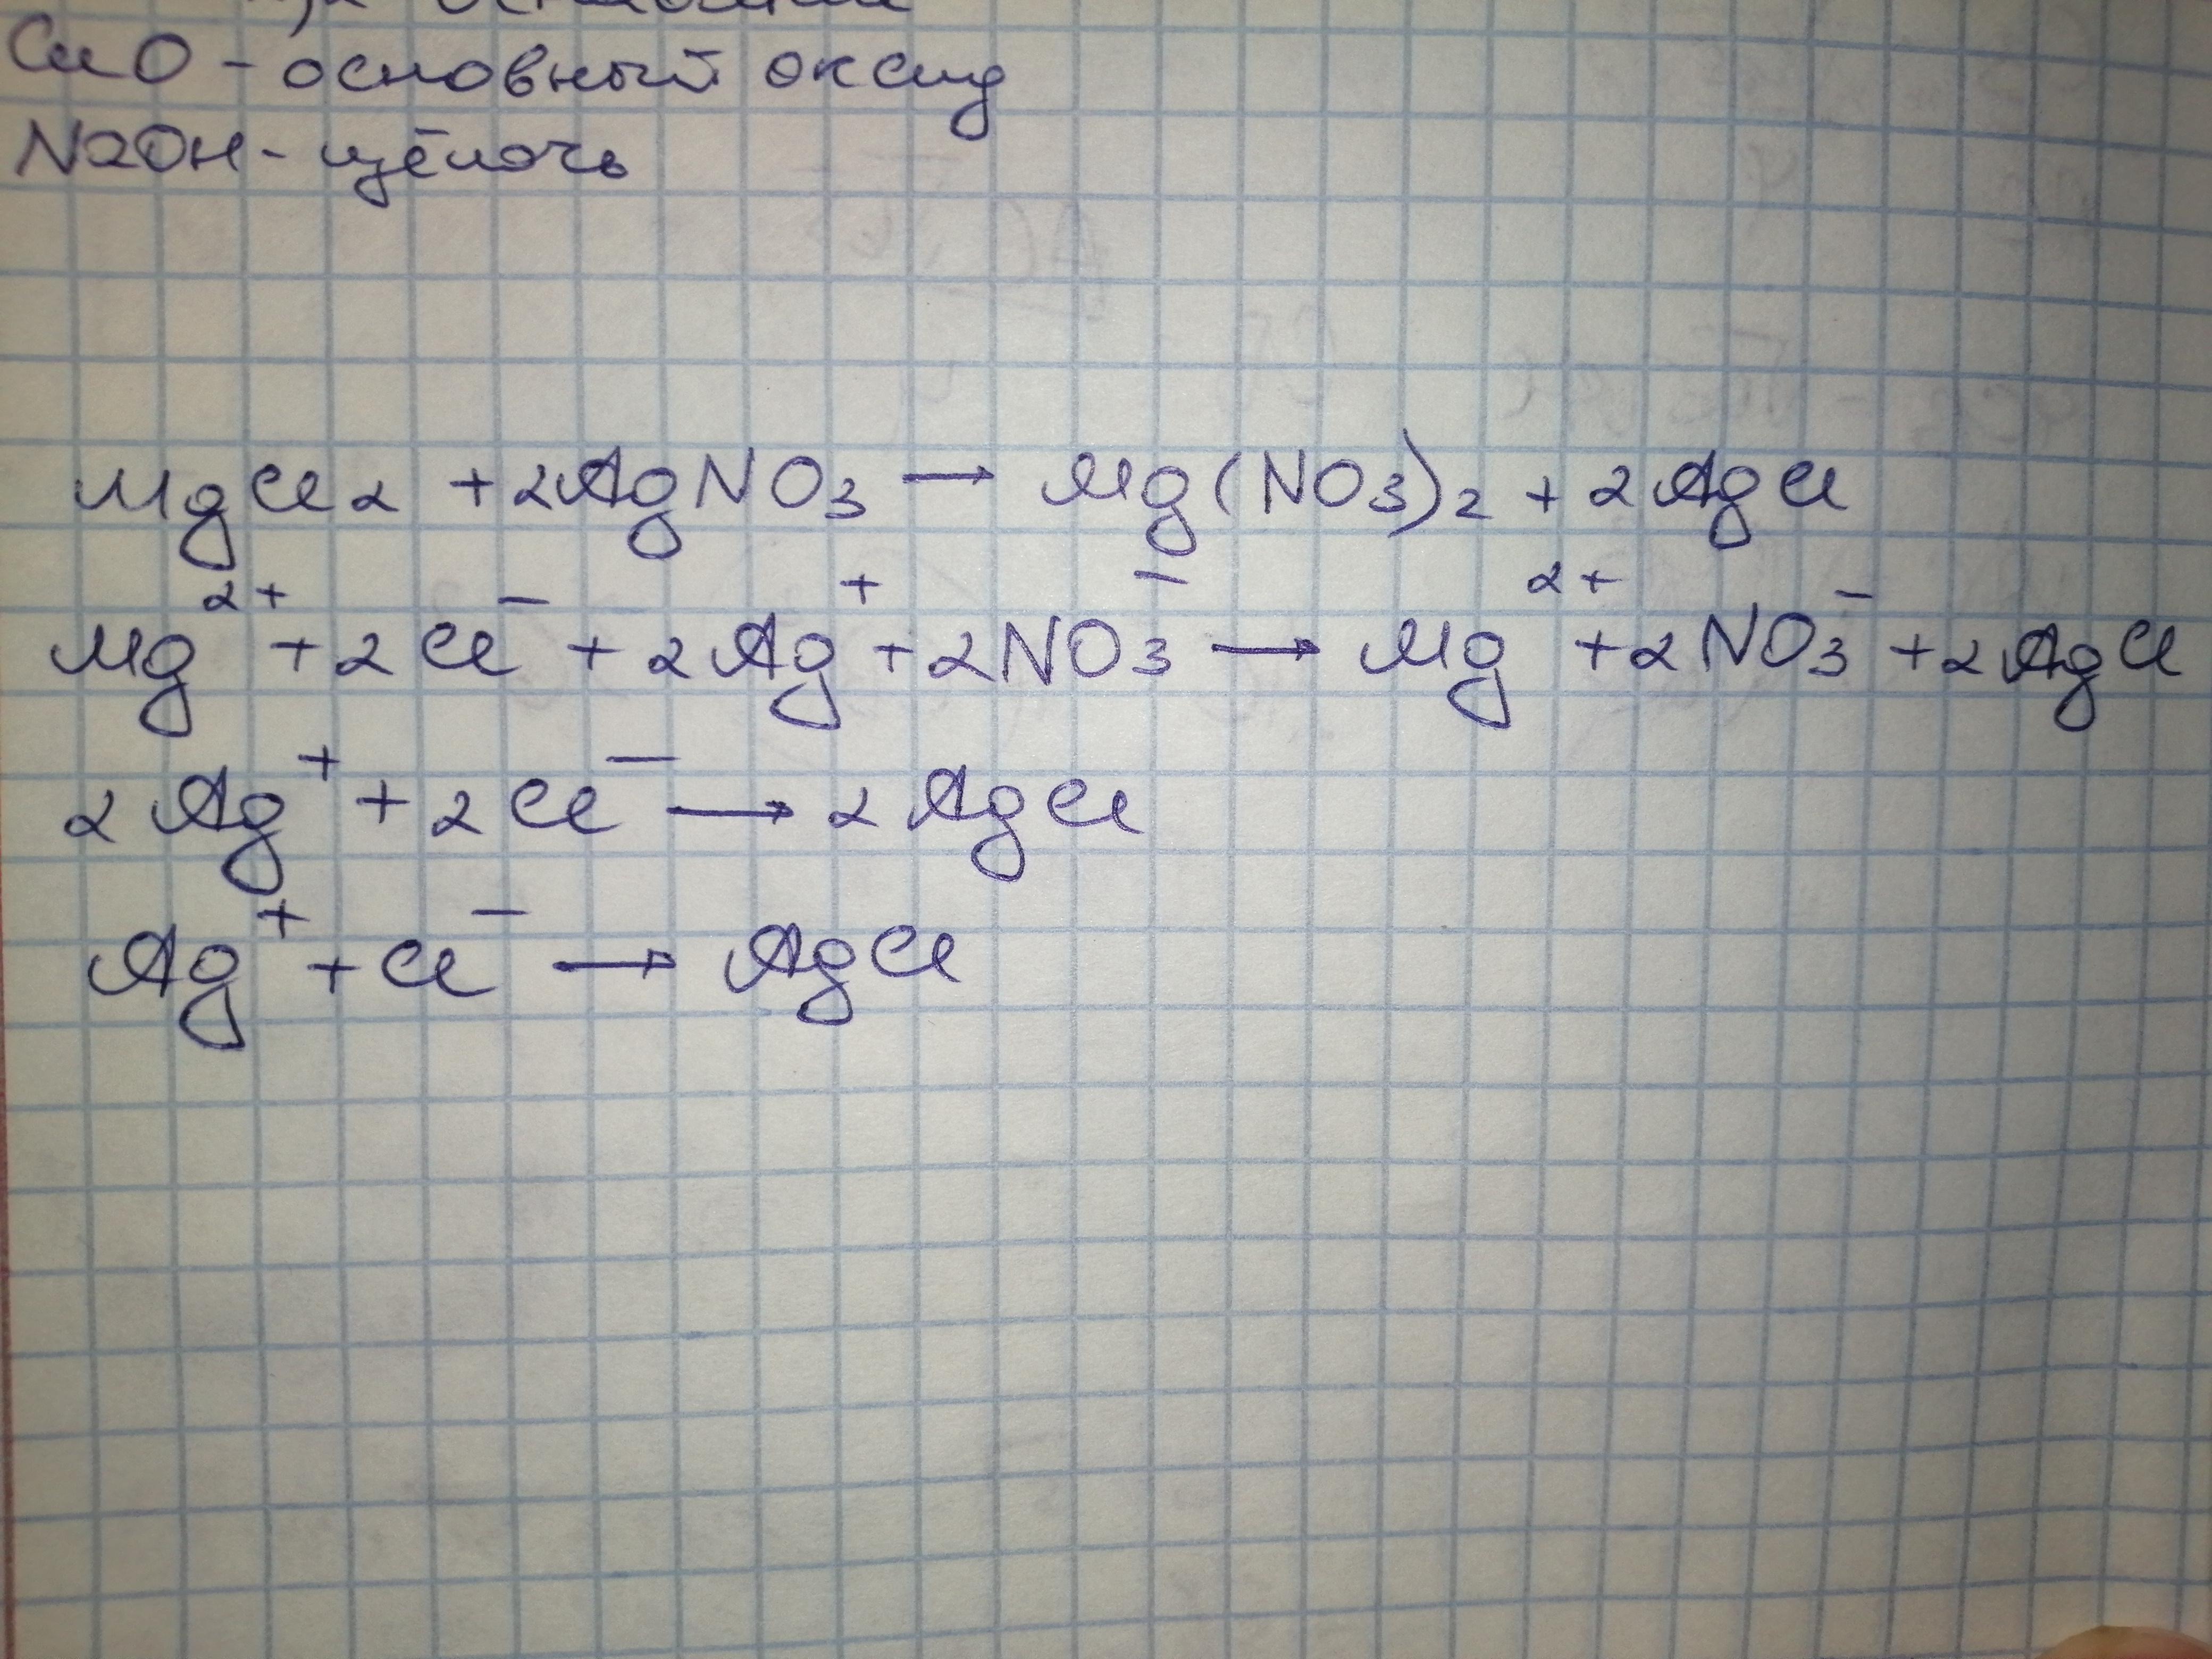 CuO - основный оксид
NaOH - щёлочь
MgCl₂ + 2AgNO₃ → Mg(NO₃)₂ + 2AgCl
Mg²⁺ + 2Cl⁻ + 2Ag⁺ + 2NO₃⁻ → Mg²⁺ + 2NO₃⁻ + 2AgCl
2Ag⁺ + 2Cl⁻ → 2AgCl
Ag⁺ + Cl⁻ → AgCl